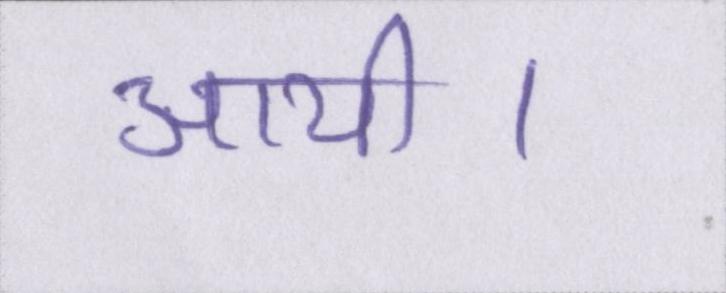 आयी ।